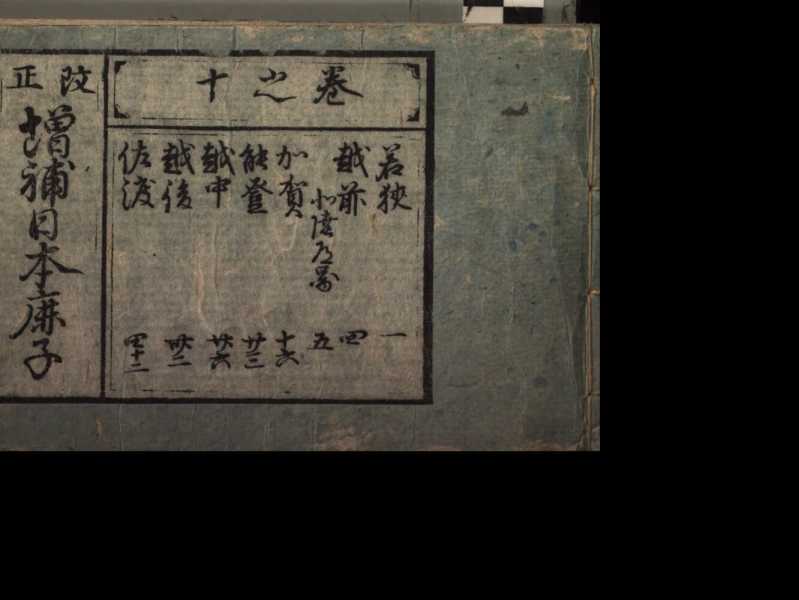 巻之十
若狭 一
越前 四
北陸道 五
加賀 十六
能登 廿三
越中 廿六
越後 卅二
佐渡 四十二
改正
増補日本鹿子